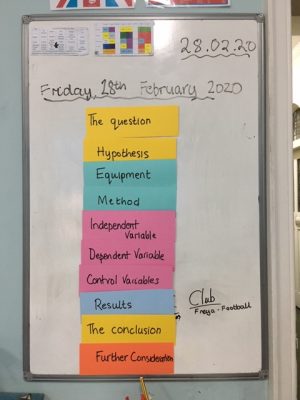 28.02.20
Friday, 28th February 2020
The question
Hypothesis
Equipment
Method
Independent
Variable
Dependent Variable
Control Variables
Results
Club
Freya - Football
The conclusion
Further Consideration